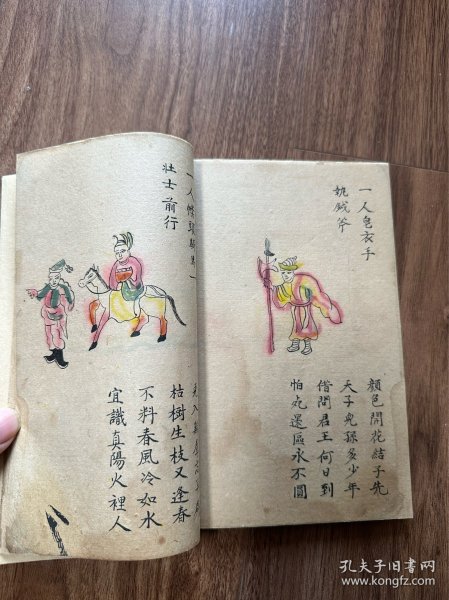 一人皂衣手
执钺斧
顏色開花結子先
天子兒孫多少年
借問君王何日到
怕丸還區水不圓
一人
壯士前行
枯樹生枝又逢春
不料春風冷如水
宜識真陽火裡人
孔夫子旧书网
www.kongfz.com